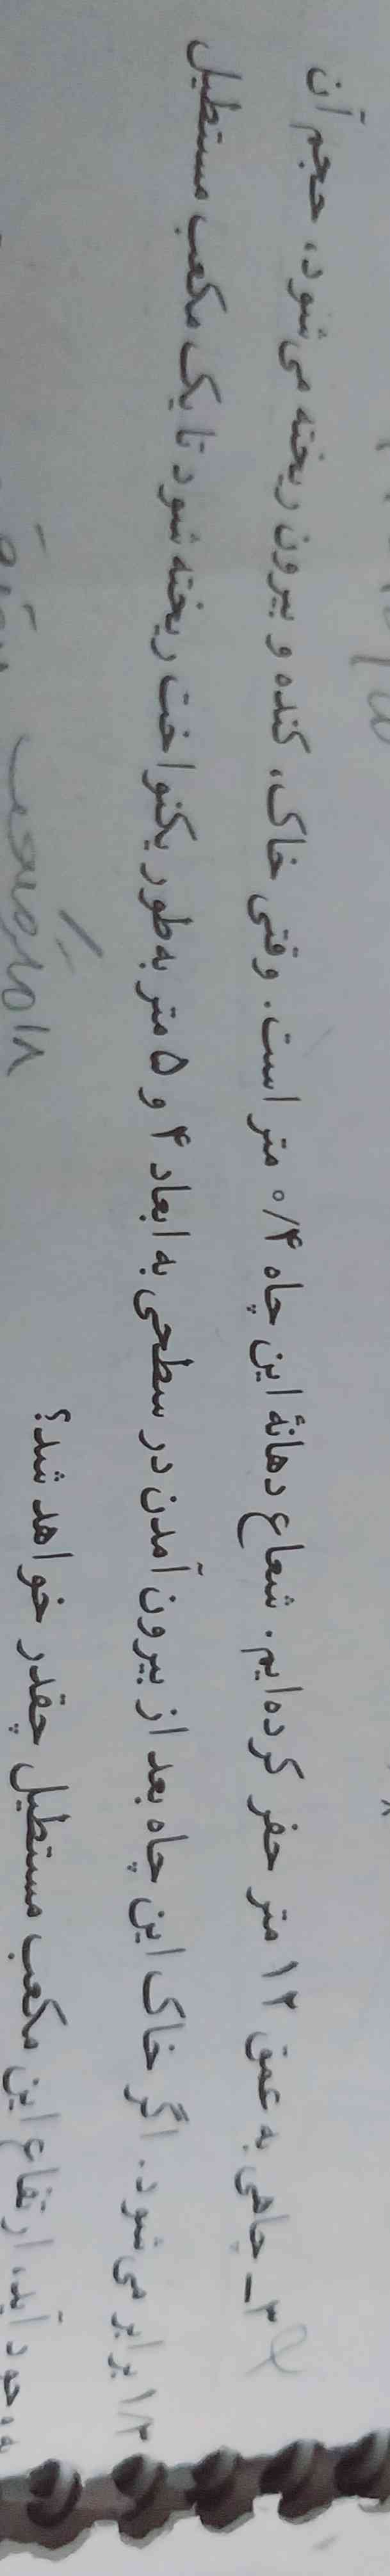 ۳ـ چاهی به عمق ۱۲ متر حفر کرده‌ایم. شعاع دهانهٔ این چاه ۰/۴ متر است. وقتی خاک، کنده و بیرون ریخته می‌شود، حجم آن
۱/۲ برابر می‌شود. اگر خاک این چاه بعد از بیرون آمدن در سطحی به ابعاد ۴ و ۵ متر به طور یکنواخت ریخته شود تا یک مکعب مستطیل
به وجود آید، ارتفاع این مکعب مستطیل چقدر خواهد شد؟